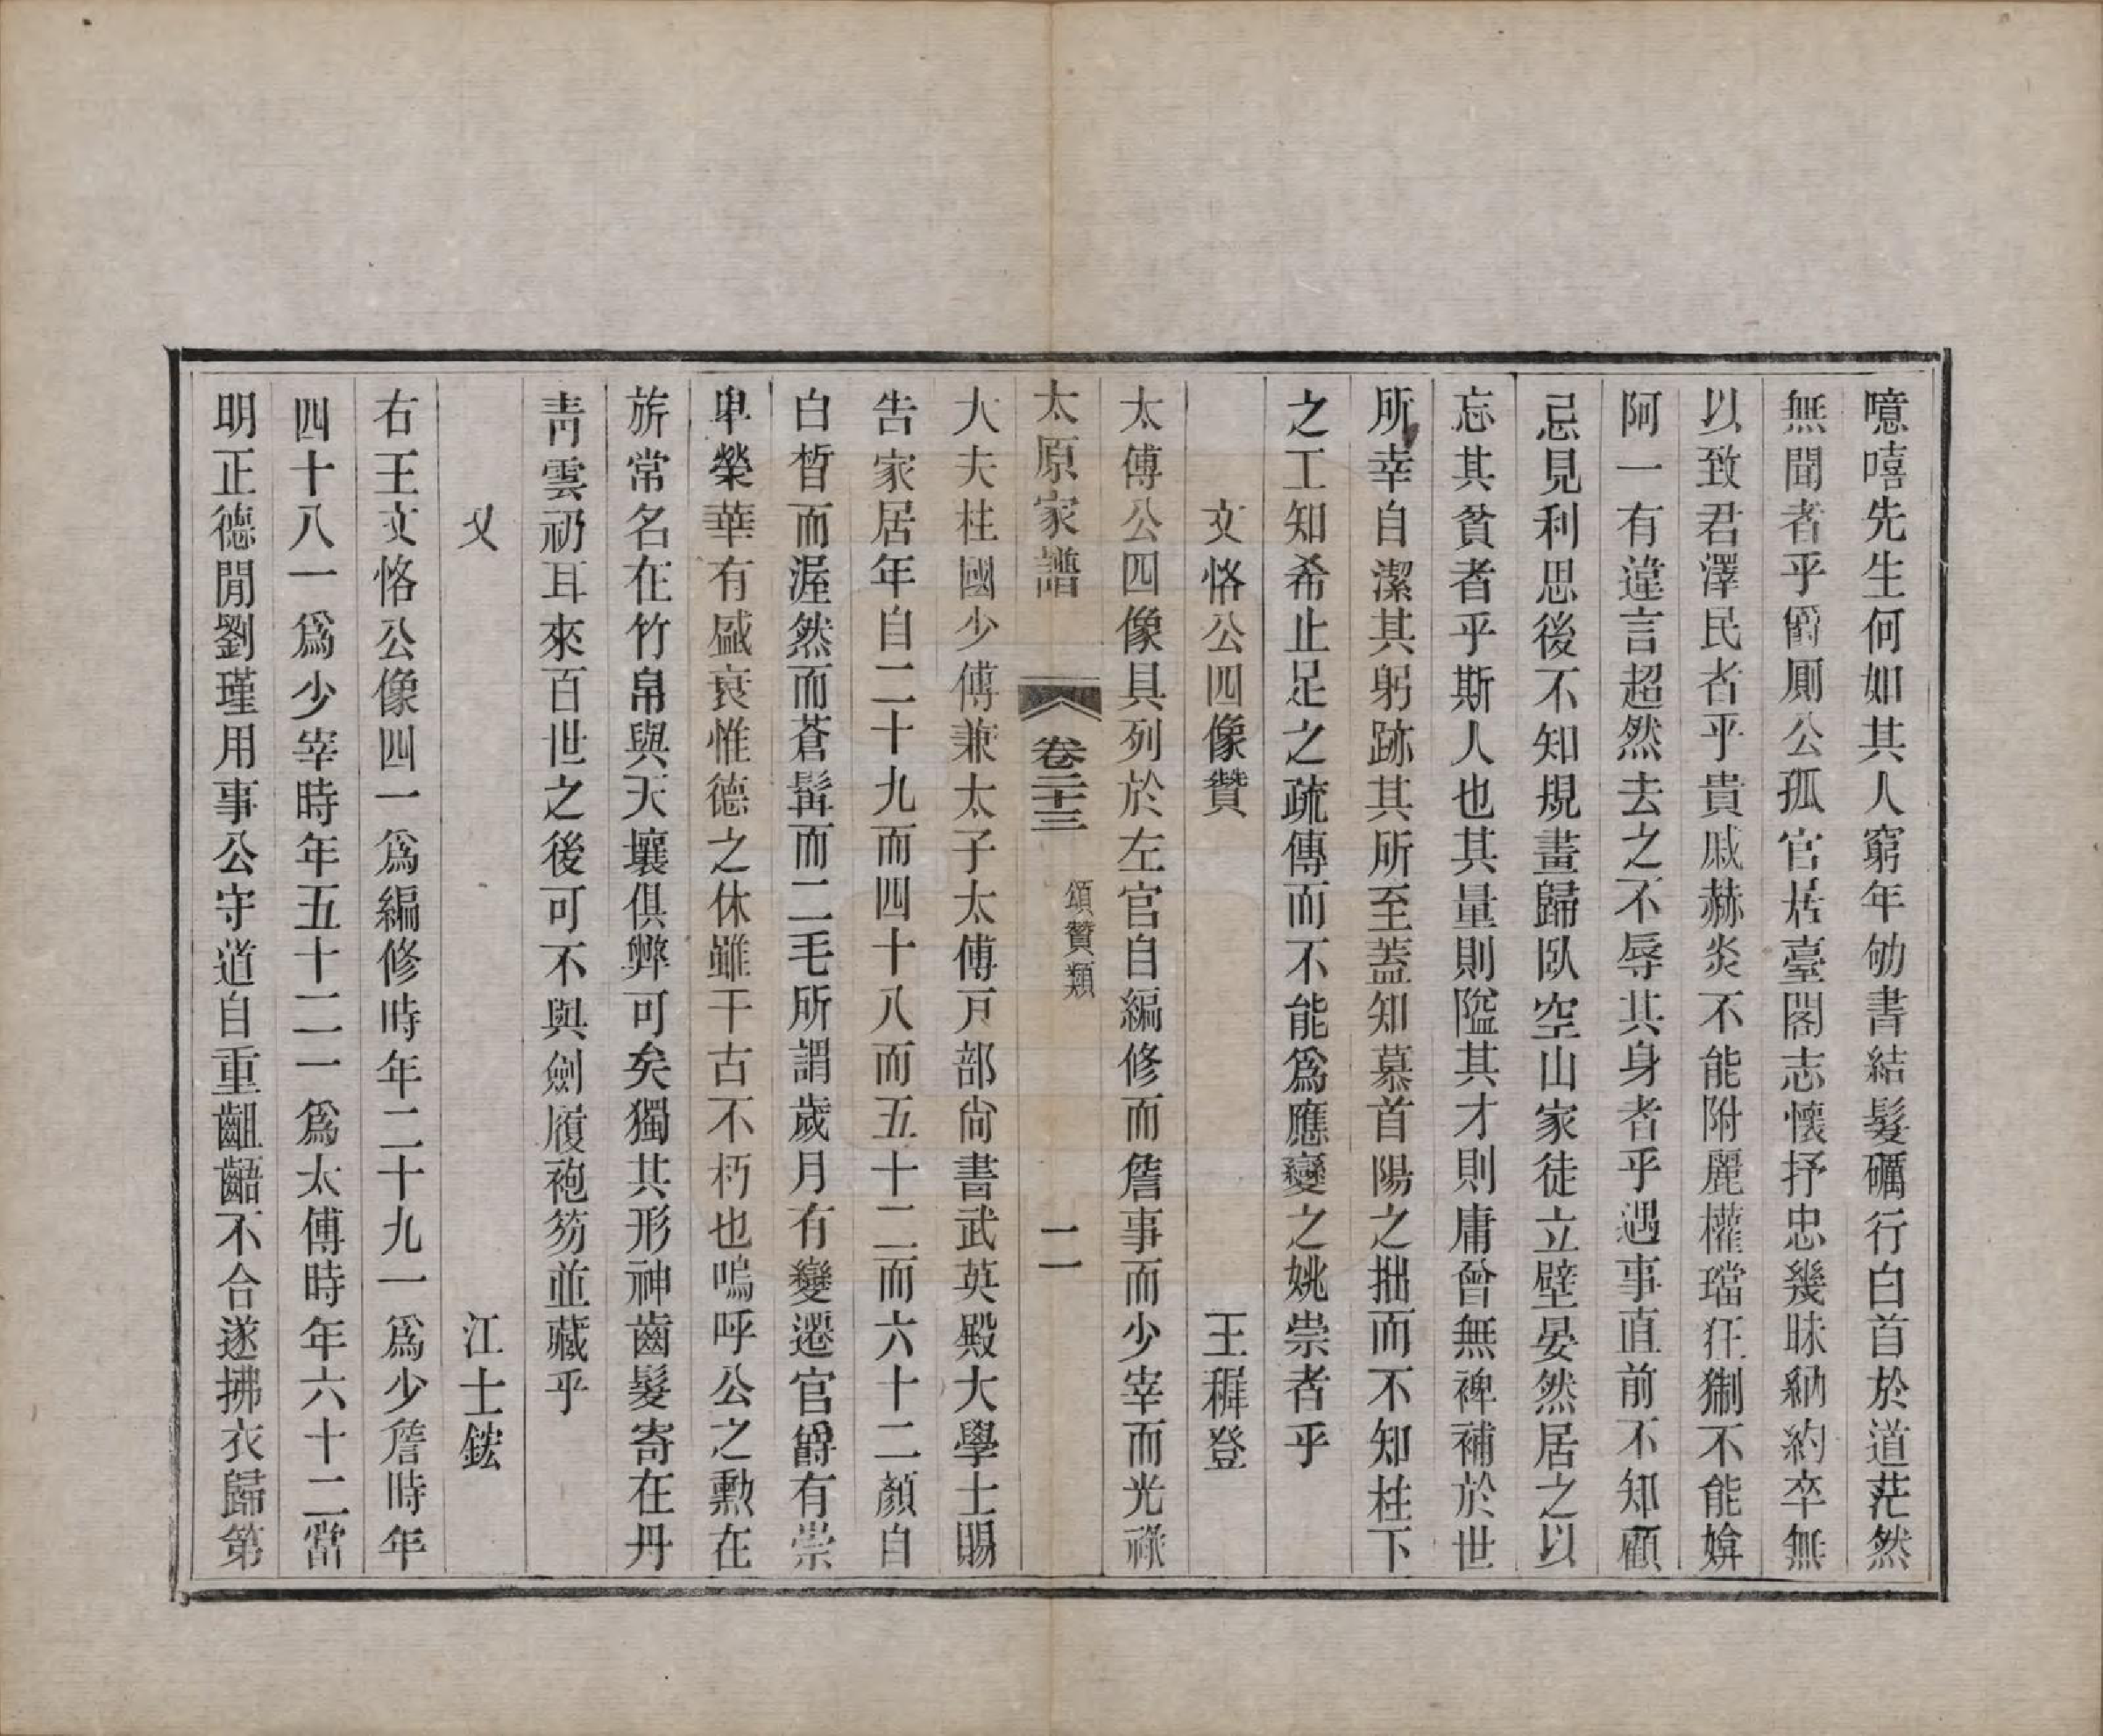 噫嘻先生何如其人窮年劬書結髮礪行白首於道茫然
無聞者乎爵厠公孤官居臺閣志懷抒忠幾昧納約卒無
以致君澤民者乎貴戚赫炎不能附麗權璫狂猘不能媕
阿一有違言超然去之不辱其身者乎遇事直前不知顧
忌見利思後不知規畫歸臥空山家徒立壁晏然居之以
忘其貧者乎斯人也其量則隘其才則庸曾無裨補於世
所幸自潔其躬跡其所至蓋知慕首陽之拙而不知柱下
之工知希止足之疏傅而不能爲應變之姚崇者乎
文恪公四像贊　王穉登
太傅公四像具列於左官自編修而詹事而少宰而光祿
太原家譜　卷二十三　頌贊類　二
大夫柱國少傅兼太子太傅戸部尚書武英殿大學士賜
告家居年自二十九而四十八而五十二而六十二顏自
白晳而渥然而蒼髯而二毛所謂歲月有變遷官爵有崇
卑榮華有盛衰惟德之休雖千古不朽也嗚呼公之勳在
旂常名在竹帛與天壤俱弊可矣獨其形神齒髮寄在丹
靑雲礽耳來百世之後可不與劍履袍笏並藏乎
又　江士鋐
右王文恪公像四一爲編修時年二十九一爲少詹時年
四十八一爲少宰時年五十二一爲太傅時年六十二當
明正德閒劉瑾用事公守道自重齟齬不合遂拂衣歸第